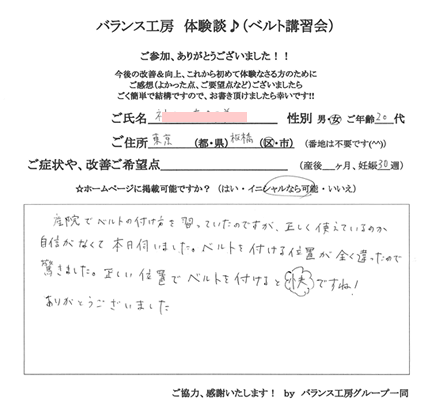 バランス工房 体験談♪(ベルト講習会)
ご参加、ありがとうございました！！
今後の改善＆向上、これから初めて体験なさる方のために
ご感想(よかった点、ご要望点など)ございましたら
ごく簡単で結構ですので、お書き頂けましたら幸いです!!
ご氏名 性別 男・女 ご年齢20代
ご住所 東京 (都・県) 板橋 (区・市) (番地は不要です(^^))
ご症状や、改善ご希望点 (産後__ヶ月、妊娠30週)
☆ホームページに掲載可能ですか？ (はい・イニシャルなら可能・いいえ)
産院でベルトの付け方を習っていたのですが、正しく使えているのか
自信がなくて本日伺いました。ベルトを付ける位置が全く違ったので
驚きました。正しい位置でベルトを付けると快ですね!
ありがとうございました
ご協力、感謝いたします！ by バランス工房グループ一同